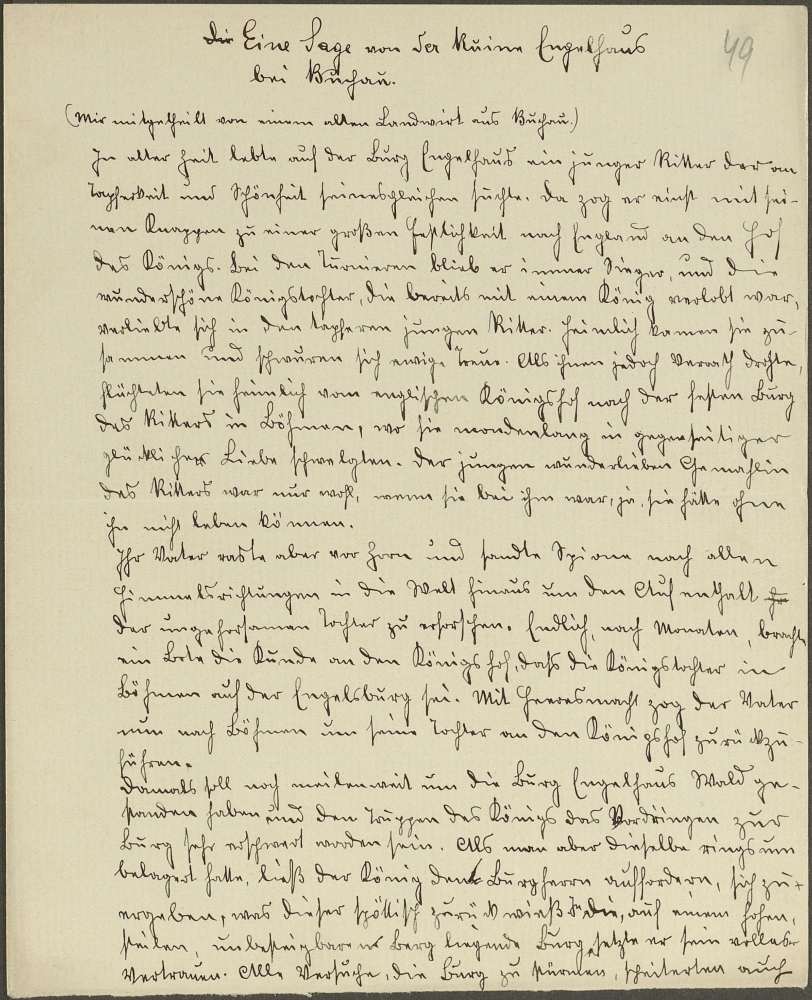 Die Eine Sage von der Ruine Engelhaus
49
bei Buchau.
(Mir mitgetheilt von einem alten Landwirt aus Buchau.)
In alter Zeit lebte auf der Burg Engelhaus ein junger Ritter der an
Tapferkeit und Schönheit seinesgleichen suchte. Da zog er einst mit sei-
nen Knappen zu einer großen Festlichkeit nach England an den Hof
des Königs. Bei den Turnieren blieb er immer Sieger, und die
wunderschöne Königstochter, die bereits mit einem König verlobt war,
verliebte sich in den tapferen jungen Ritter. Heimlich kamen sie zu-
sammen und schwuren sich ewige Treue. Als ihnen jedoch Verrath drohte,
flüchteten sie heimlich vom englischen Königshof nach der festen Burg
des Ritters in Böhmen, wo sie mondenlang in gegenseitiger
glücklicher Liebe schwelgten. Der jungen wunderlieben Gemahlin
des Ritters war nur wohl, wenn sie bei ihm war, ja, sie hätte ohne
ihn nicht leben können.
Ihr Vater raste aber vor Zorn und sandte Spione nach allen
Himmelsrichtungen in die Welt hinaus um den Aufenthalt
der ungehorsamen Tochter zu erforschen. Endlich, nach Monaten, brachte
ein Bote die Kunde an den Königshof, daß die Königstochter in
Böhmen auf der Engelsburg sei. Mit Heeresmacht zog der Vater
nun nach Böhmen um seine Tochter an den Königshof zurückzu-
führen.
Damals soll noch meilenweit um die Burg Engelhaus Wald ge-
standen haben und den Truppen des Königs das Vordringen zur
Burg sehr erschwert worden sein. Als man aber dieselbe ringsum
belagert hatte, ließ der König den Burgherrn auffordern, sich zu
ergeben, was dieser spöttisch zurückwieß. In die, auf einem hohen,
steilen, unbesteigbaren Berg liegende Burg setzte er sein volles
Vertrauen. Alle Versuche, die Burg zu stürmen, scheiterten auch